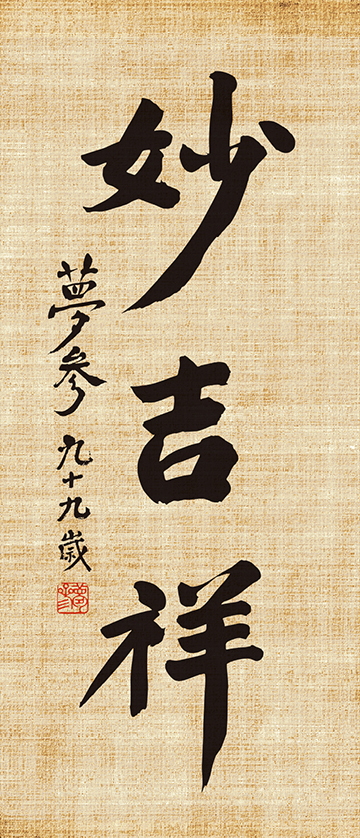 妙吉祥
夢參九十九歲